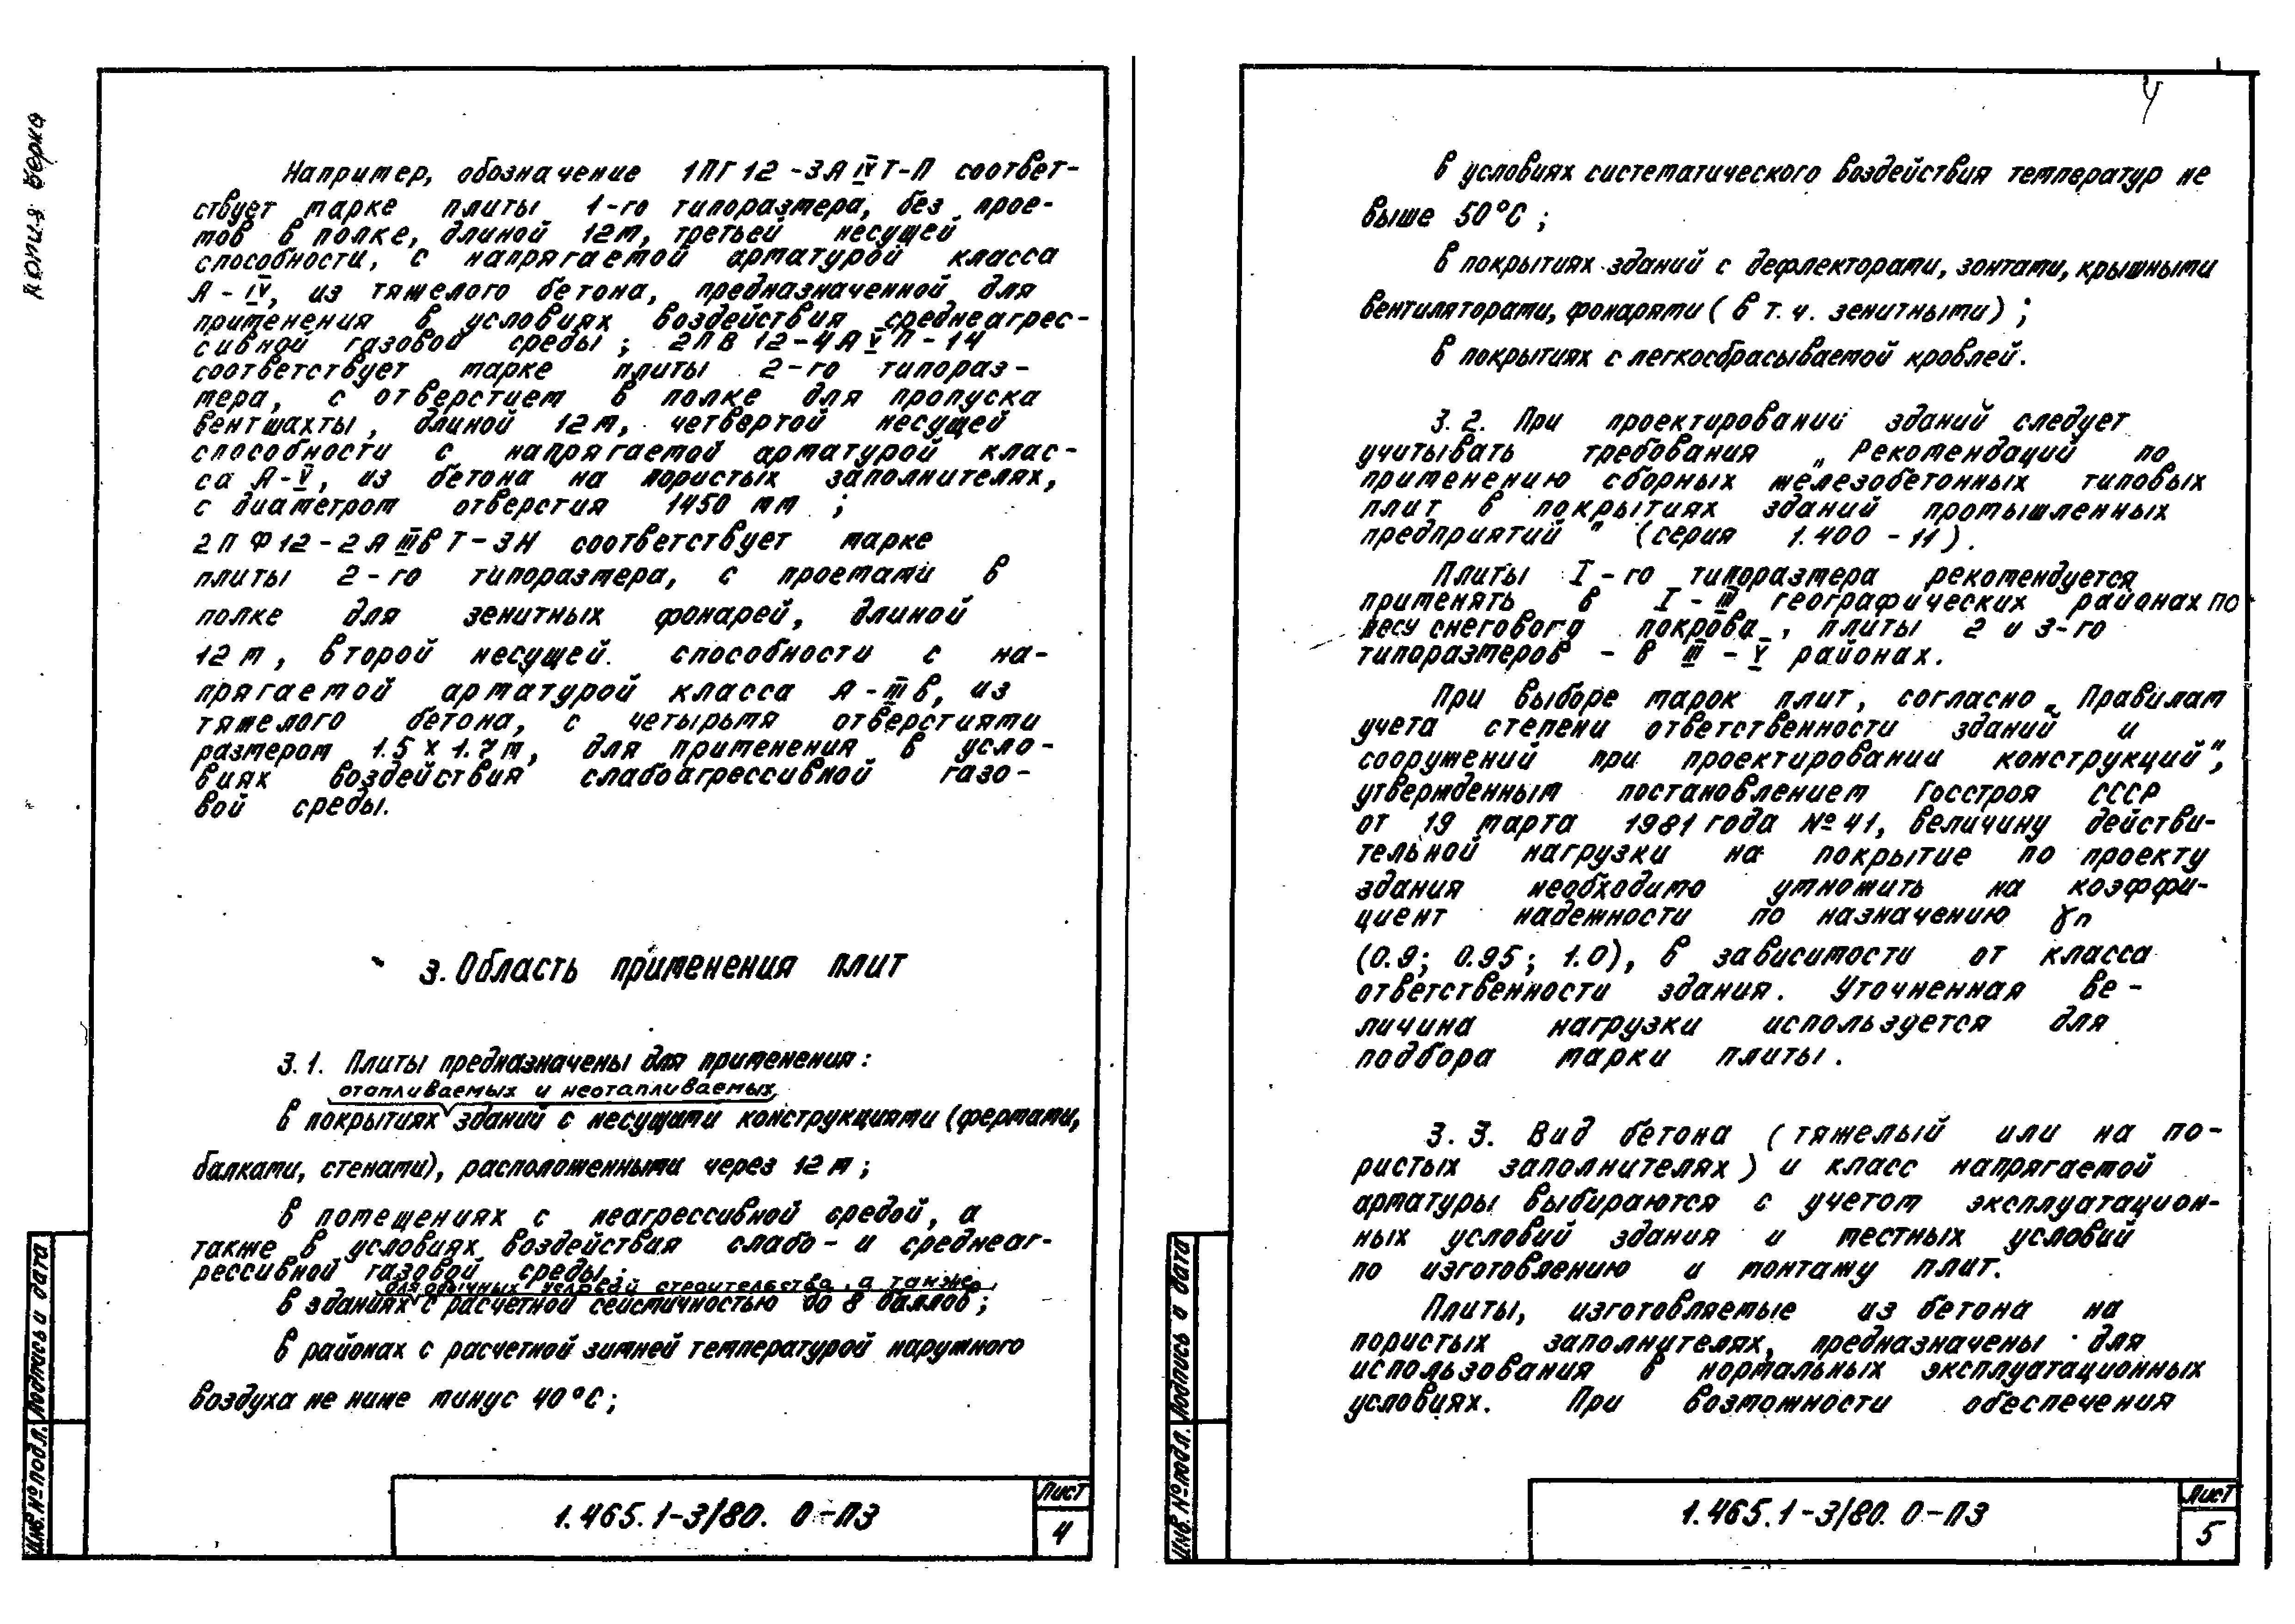 Копия верна
Например, обозначение 1ПГ12-3АIVТ-П соответ-
ствует марке плиты 1-го типоразмера, без прое-
мов в полке, длиной 12м, третьей несущей
способности, с напрягаемой арматурой класса
А-IV, из тяжелого бетона, предназначенной для
применения в условиях воздействия среднеагрес-
сивной газовой среды; 2ПВ12-4АVП-14
соответствует марке плиты 2-го типораз-
мера, с отверстием в полке для пропуска
вентшахты, длиной 12м, четвертой несущей
способности с напрягаемой арматурой клас-
са А-V, из бетона на пористых заполнителях,
с диаметром отверстия 1450 мм ;
2ПФ12-2АIIIвТ-3Н соответствует марке
плиты 2-го типоразмера, с проемами в
полке для зенитных фонарей, длиной
12м, второй несущей способности с на-
прягаемой арматурой класса А-IIIв, из
тяжелого бетона, с четырьмя отверстиями
размером 1.5 х 1.7м, для применения в усло-
виях воздействия слабоагрессивной газо-
вой среды.
3. Область применения плит
3.1. Плиты предназначены для применения:
отапливаемых и неотапливаемых
в покрытиях зданий с несущими конструкциями (фермами,
балками, стенами), расположенными через 12м;
в помещениях с неагрессивной средой, а
также в условиях воздействия слабо- и среднеаг-
рессивной газовой среды;
для обычных условий строительства, а также
в зданиях с расчетной сейсмичностью до 8 баллов;
в районах с расчетной зимней температурой наружного
воздуха не ниже минус 40°С;
Инв.№подл. Подпись и дата
1.465.1-3/80. 0-ПЗ
Лист
4
4
в условиях систематического воздействия температур не
выше 50°С;
в покрытиях зданий с дефлекторами, зонтами, крышными
вентиляторами, фонарями (в т.ч. зенитными);
в покрытиях с легкосбрасываемой кровлей.
3.2. При проектировании зданий следует
учитывать требования „Рекомендаций по
применению сборных железобетонных типовых
плит в покрытиях зданий промышленных
предприятий" (серия 1.400-11).
Плиты I-го типоразмера рекомендуется
применять в I-III географических районах по
весу снегового покрова, плиты 2 и 3-го
типоразмеров - в III - V районах.
При выборе марок плит, согласно „Правилам
учета степени ответственности зданий и
сооружений при проектировании конструкций",
утвержденным постановлением Госстроя СССР
от 19 марта 1981 года №41, величину действи-
тельной нагрузки на покрытие по проекту
здания необходимо умножить на коэффи-
циент надежности по назначению γn
(0.9; 0.95; 1.0), в зависимости от класса
ответственности здания. Уточненная ве-
личина нагрузки используется для
подбора марки плиты.
3.3. Вид бетона (тяжелый или на по-
ристых заполнителях) и класс напрягаемой
арматуры выбираются с учетом эксплуатацион-
ных условий здания и местных условий
по изготовлению и монтажу плит.
Плиты, изготовляемые из бетона на
пористых заполнителях, предназначены для
использования в нормальных эксплуатационных
условиях. При возможности обеспечения
Инв.№подл. Подпись и дата
1.465.1-3/80. 0-ПЗ
Лист
5